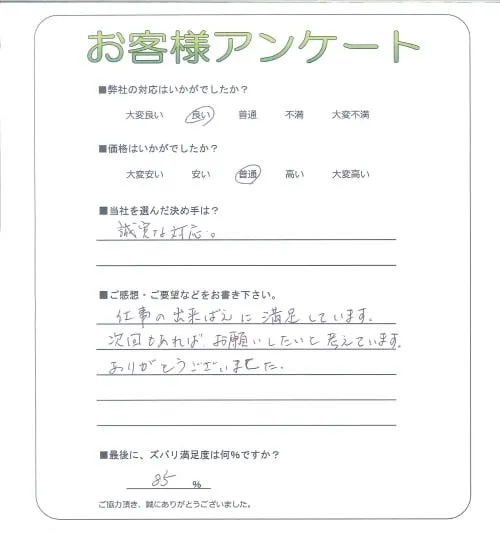 お客様アンケート
■弊社の対応はいかがでしたか?
大変良い 良い 普通 不満 大変不満
■価格はいかがでしたか?
大変安い 安い 普通 高い 大変高い
■当社を選んだ決め手は?
誠実な対応。
■ご感想・ご要望などをお書き下さい。
仕事の出来ばえに満足しています。
次回もあれば、お願いしたいと考えています。
ありがとうございました。
■最後に、ズバリ満足度は何%ですか?
85 %
ご協力頂き、誠にありがとうございました。